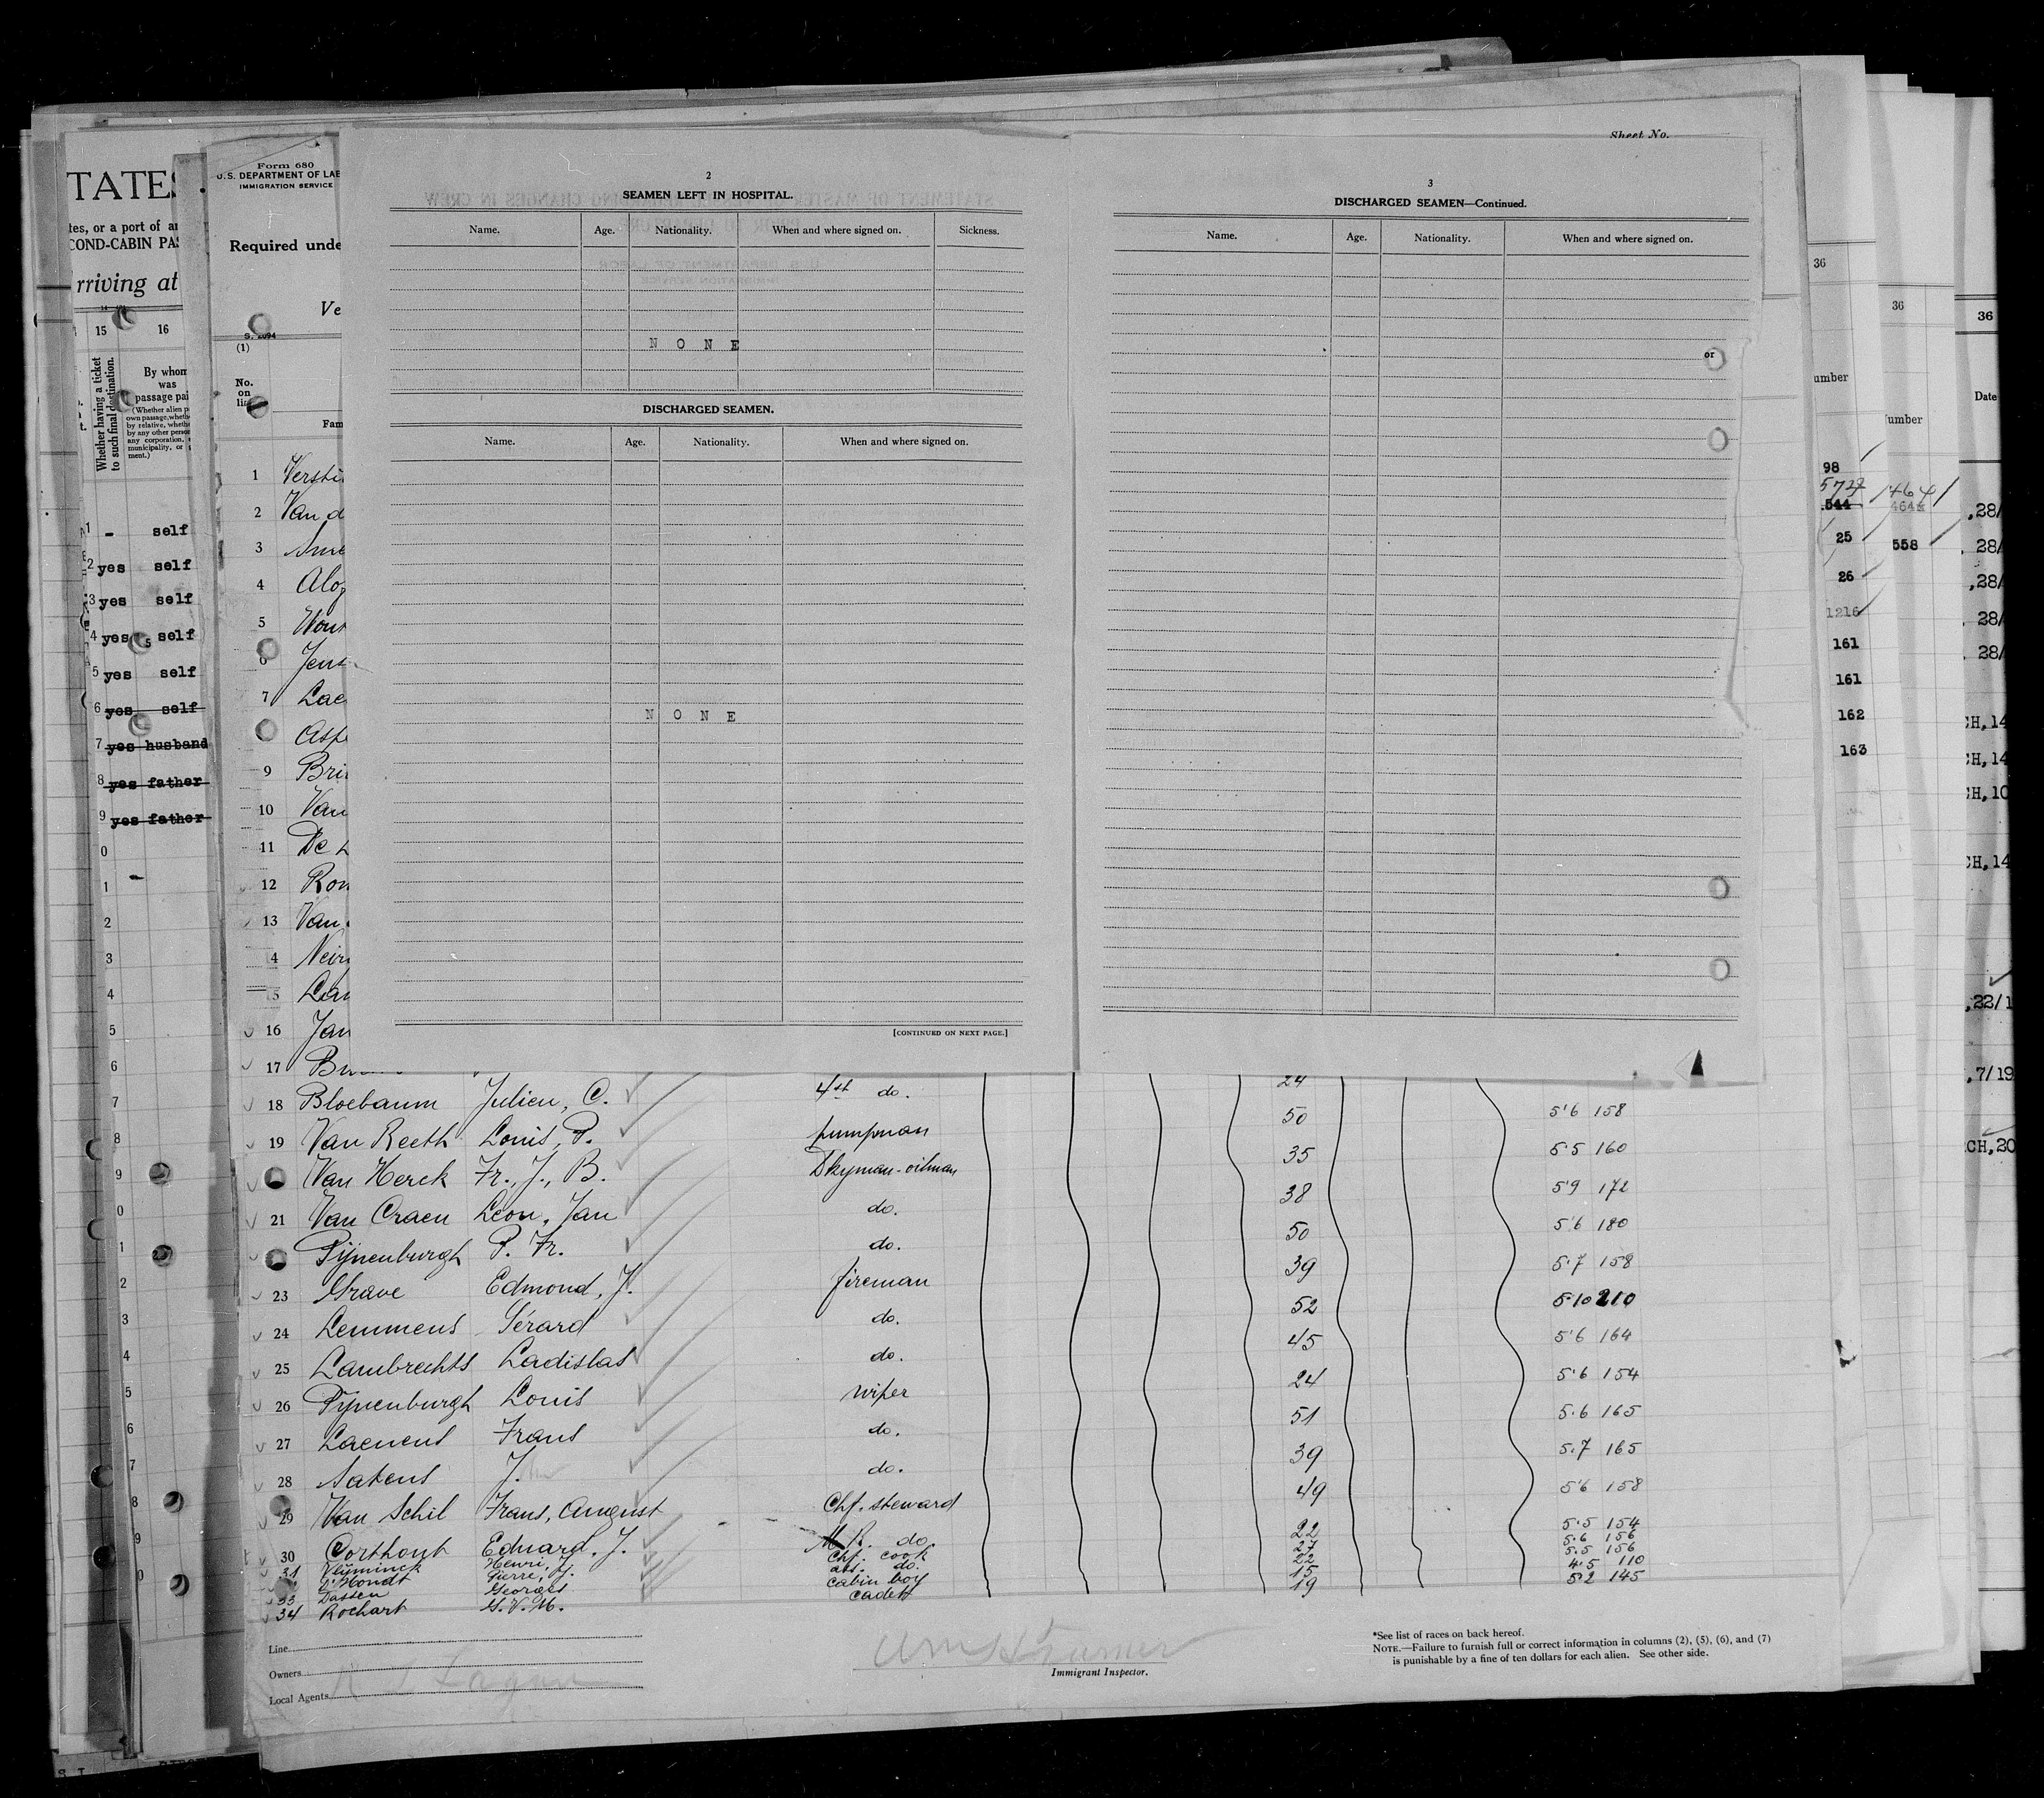 Sheet No.
TATES
tes, or a port of
COND-CABIN PAS
rriving at
15 16
Whether having a ticket to such final destination.
By whom
was
passage pai
(Whether alien p
own passage, wheth
by relative, wheth
by any other perso
any corporation,
municipality, or
ment.)
1 - self
2 yes self
3 yes self
4 yes self
5 yes self
6 yes self
7 yes husband
8 yes father
9 yes father
0
1
2
3
4
5
6
7
8
9
0
1
2
3
4
5
6
7
8
9
0
Form 680
U.S. DEPARTMENT OF LAB
IMMIGRATION SERVICE
Required unde
Ve
(1)
No.
on
Fam
1 Versti
2 Van d
3
4
5
6 Jens
7 Lae
9 Bri
10 Van
11 De
12 Rom
13 Van
4 Neir
5 Lam
16 Jan
17
2
SEAMEN LEFT IN HOSPITAL.
Name. Age. Nationality. When and where signed on. Sickness.
N O N E
DISCHARGED SEAMEN.
Name. Age. Nationality. When and where signed on.
N O N E
[CONTINUED ON NEXT PAGE.]
3
DISCHARGED SEAMEN—Continued.
Name. Age. Nationality. When and where signed on.
or
24
18 Bloebaum Julien, C. 4st do. 50 5'6 158
19 Van Reeth Louis, P. pumpman 35 5'5 160
Van Herck Fr., J., B. Dkyman-oilman 38 5'9 172
21 Van Craen Leon, Jan do. 50 5'6 180
Pijnenburgh P. Fr. do. 39 5'7 158
23 Grave Edmond, J. fireman 52 5'10 210
24 Lemmens Gérard do. 45 5'6 164
25 Lambrechts Ladislas do. 24 5'6 154
26 Pijnenburgh Louis wiper 51 5.6 165
27 Laenens Frans do. 39 5.7 165
28 Satens J. do. 49 5'6 158
29 Van Schil Frans, August Chf. steward 22 5'5 154
30 Corthout Eduard, J. M R. do. 27 5.6 156
31 Vlijminck Henri, J. Chf. cook 22 5.5 156
D'Hondt Pierre, J. do. 15 4'5 110
33 Dassen Georges cabin boy 19 5'2 145
34 Rochart G. V. M. cadet
Line
Owners
Local Agents
Immigrant Inspector.
*See list of races on back hereof.
NOTE.—Failure to furnish full or correct information in columns (2), (5), (6), and (7)
is punishable by a fine of ten dollars for each alien. See other side.
36
umber
98
572
544
25
26
1216
161
161
162
163
36
umber
464
558
36
Date
,28/
28/
,28/
28/
28/
CH,14
CH,14
CH,10
CH,14
,22/1
,7/19
CH,20